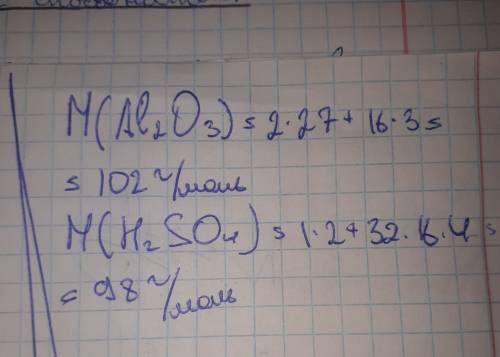 M(Al₂O₃) = 2·27+ 16·3 =
= 102 г/моль
M(H₂SO₄) = 1·2+32·16·4 =
= 98 г/моль